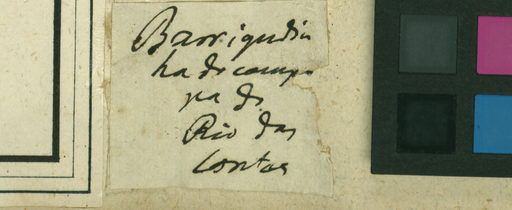 Barrigudin
ha do campo
pa do
Rio das
Contas